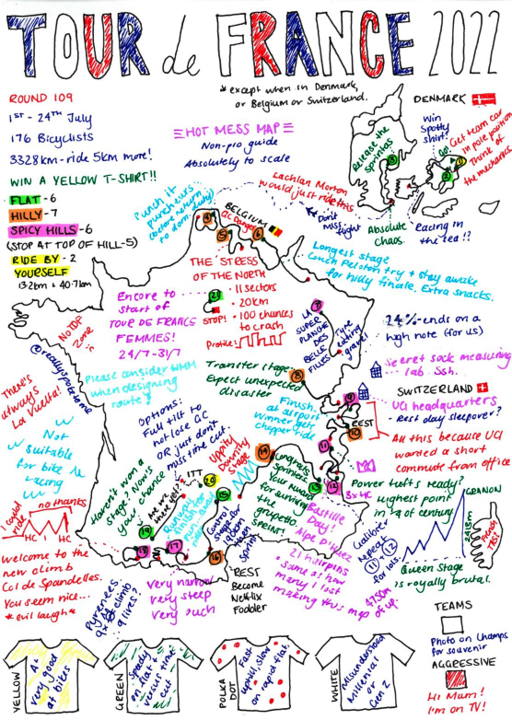 TOUR de FRANCE 2022
* except when in Denmark,
or Belgium or Switzerland.
ROUND 109
1ST - 24TH July
176 Bicyclists
3328km - ride 5km more!
WIN A YELLOW T-SHIRT!!
FLAT - 6
HILLY - 7
SPICY HILLS - 6
(STOP AT TOP OF HILL-5)
RIDE BY - 2
YOURSELF
13.2km + 40.7km
HOT MESS MAP
Non-pro guide
Absolutely to scale
DENMARK
Win
Spotty
shirt!
Go!
Get team car
in pole position
in front of
the mechanics
Release the
Sprintas
Absolute
chaos.
Racing in
the sea!!
Lachlan Morton
would just ride this
Don't
miss
flight
Punch it
puncheurs
BELGIUM
GC danger
THE STRESS
OF THE NORTH
• 11 sectors
• 20km
• 100 chances
to crash
STOP!
Profile:
Longest stage
Lunch Peloton try + stay awake
for hilly finale. Extra snacks.
Encore to
start of
TOUR DE FRANCE
FEMMES!
24/7-31/7
NO TDF
Zone
@readyspokerhome
Please consider WMM
when designing
route
LA
SUPER
PLANCHE
DES
BELLES
FILLES
24% ends on a
high note (for us)
Secret sock measuring
lab. Ssh.
Transfer stage
Expect unexpected
disaster
SWITZERLAND
UCI headquarters
- Rest day sleepover?
REST
All this because UCI
wanted a short
commute from office
Finish
at airport
Winner gets
chopper ride
There's
always
La Vuelta!
Not
Suitable
for bike
racing
Options:
Full tilt to
not lose GC
or just don't
miss time cut.
ITT
Are we
there yet?
Haven't won a
stage? Now's
your chance
Uppity
Downity
Stage
Congrats
sprintas
Your reward
for surviving
the grupetto.
SPRINT
3x HC
Bastille
Day!
Alpe D'Huez
21 hairpins
- same as how
many I lost
making this map
4750m
of up.
Power tufts ready?
highest point
in ¼ of century
GRANON
2413m
Galibier
repeat
for lols
11 12
Queen Stage
is royally brutal.
I could
ride
no thanks
HC HC
Welcome to the
new climb
Col de Spandelles.
You seem nice...
* evil laugh *
Pyrenees
Very narrow
very steep
very ouch
REST
Become
Netflix
Fodder
TEAMS
Photo on Champs
for souvenir
AGGRESSIVE
Hi Mum!
I'm on TV!
YELLOW
At
very good
at bike
GREEN
Speedy
on flat +
versus time
cut
POLKA
DOT
Fast
uphill, slow
on rapper flat.
WHITE
Misunderstood
Millenial
or
Gen Z